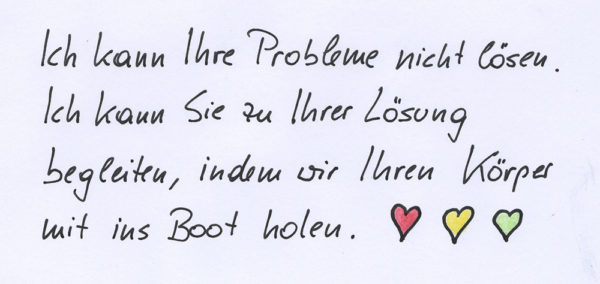 Ich kann Ihre Probleme nicht lösen.
Ich kann Sie zu Ihrer Lösung
begleiten, indem wir Ihren Körper
mit ins Boot holen.